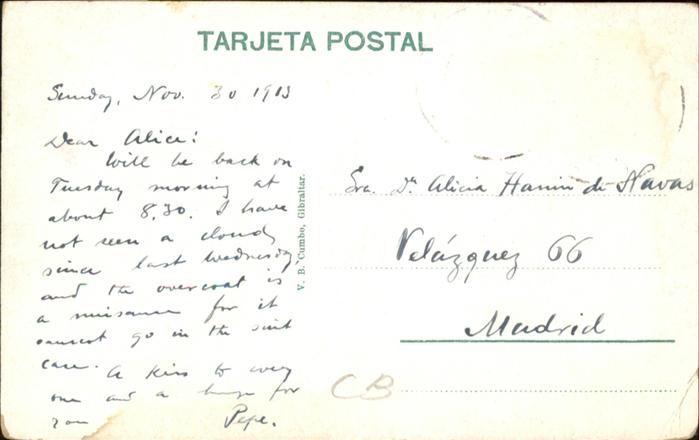 TARJETA POSTAL
Sunday, Nov. 30 1913
Dear Alice:
Will be back on
Tuesday morning at
about 8,30. I have
not seen a cloud
since last Wednesday,
and the overcoat is
a nuisance for it
cannot go in the suit
case. A kiss to every
one and a for
you Pepe.
V. B. Cumbo, Gibraltar.
Sra. Dª Alicia de Navas
Velázquez 66
Madrid
CB